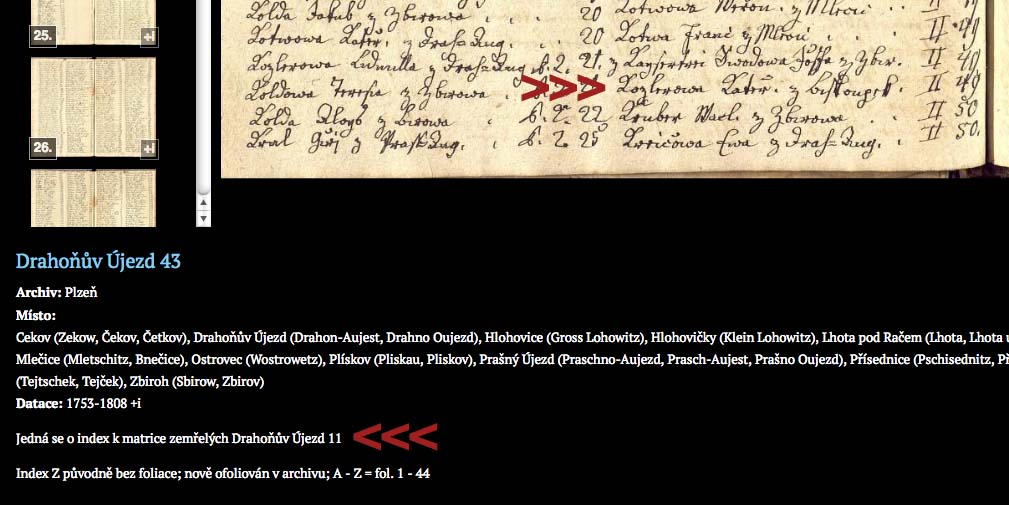 25.
+i
26.
+i
Kolda Jakub z Zbirowa 20
Kotwowa z Mlecic II
Kotwowa Kater. 20 Kotwa Franc z Mlecic II 49
Kozlerowa Ludmilla 6. 2. 21. Swobodowa z Zbir. II 49
Koldowa Teresia z Zbirowa >>> Kozlerowa Kater. z II 49
Kolda z birowa 6. 2. 22 Kruber z Zbirowa II 50
Kral Giřj z 6. 2. 25 Ewa z II 50.
Drahoňův Újezd 43
Archiv: Plzeň
Místo:
Cekov (Zekow, Čekov, Četkov), Drahoňův Újezd (Drahon-Aujest, Drahno Oujezd), Hlohovice (Gross Lohowitz), Hlohovičky (Klein Lohowitz), Lhota pod Račem (Lhota, Lhota u
Mlečice (Mletschitz, Bnečice), Ostrovec (Wostrowetz), Plískov (Pliskau, Pliskov), Prašný Újezd (Praschno-Aujezd, Prasch-Aujest, Prašno Oujezd), Přísednice (Pschisednitz, Př
(Tejtschek, Tejček), Zbiroh (Sbirow, Zbirov)
Datace: 1753-1808 +i
Jedná se o index k matrice zemřelých Drahoňův Újezd 11 <<<
Index Z původně bez foliace; nově ofoliován v archivu; A - Z = fol. 1 - 44